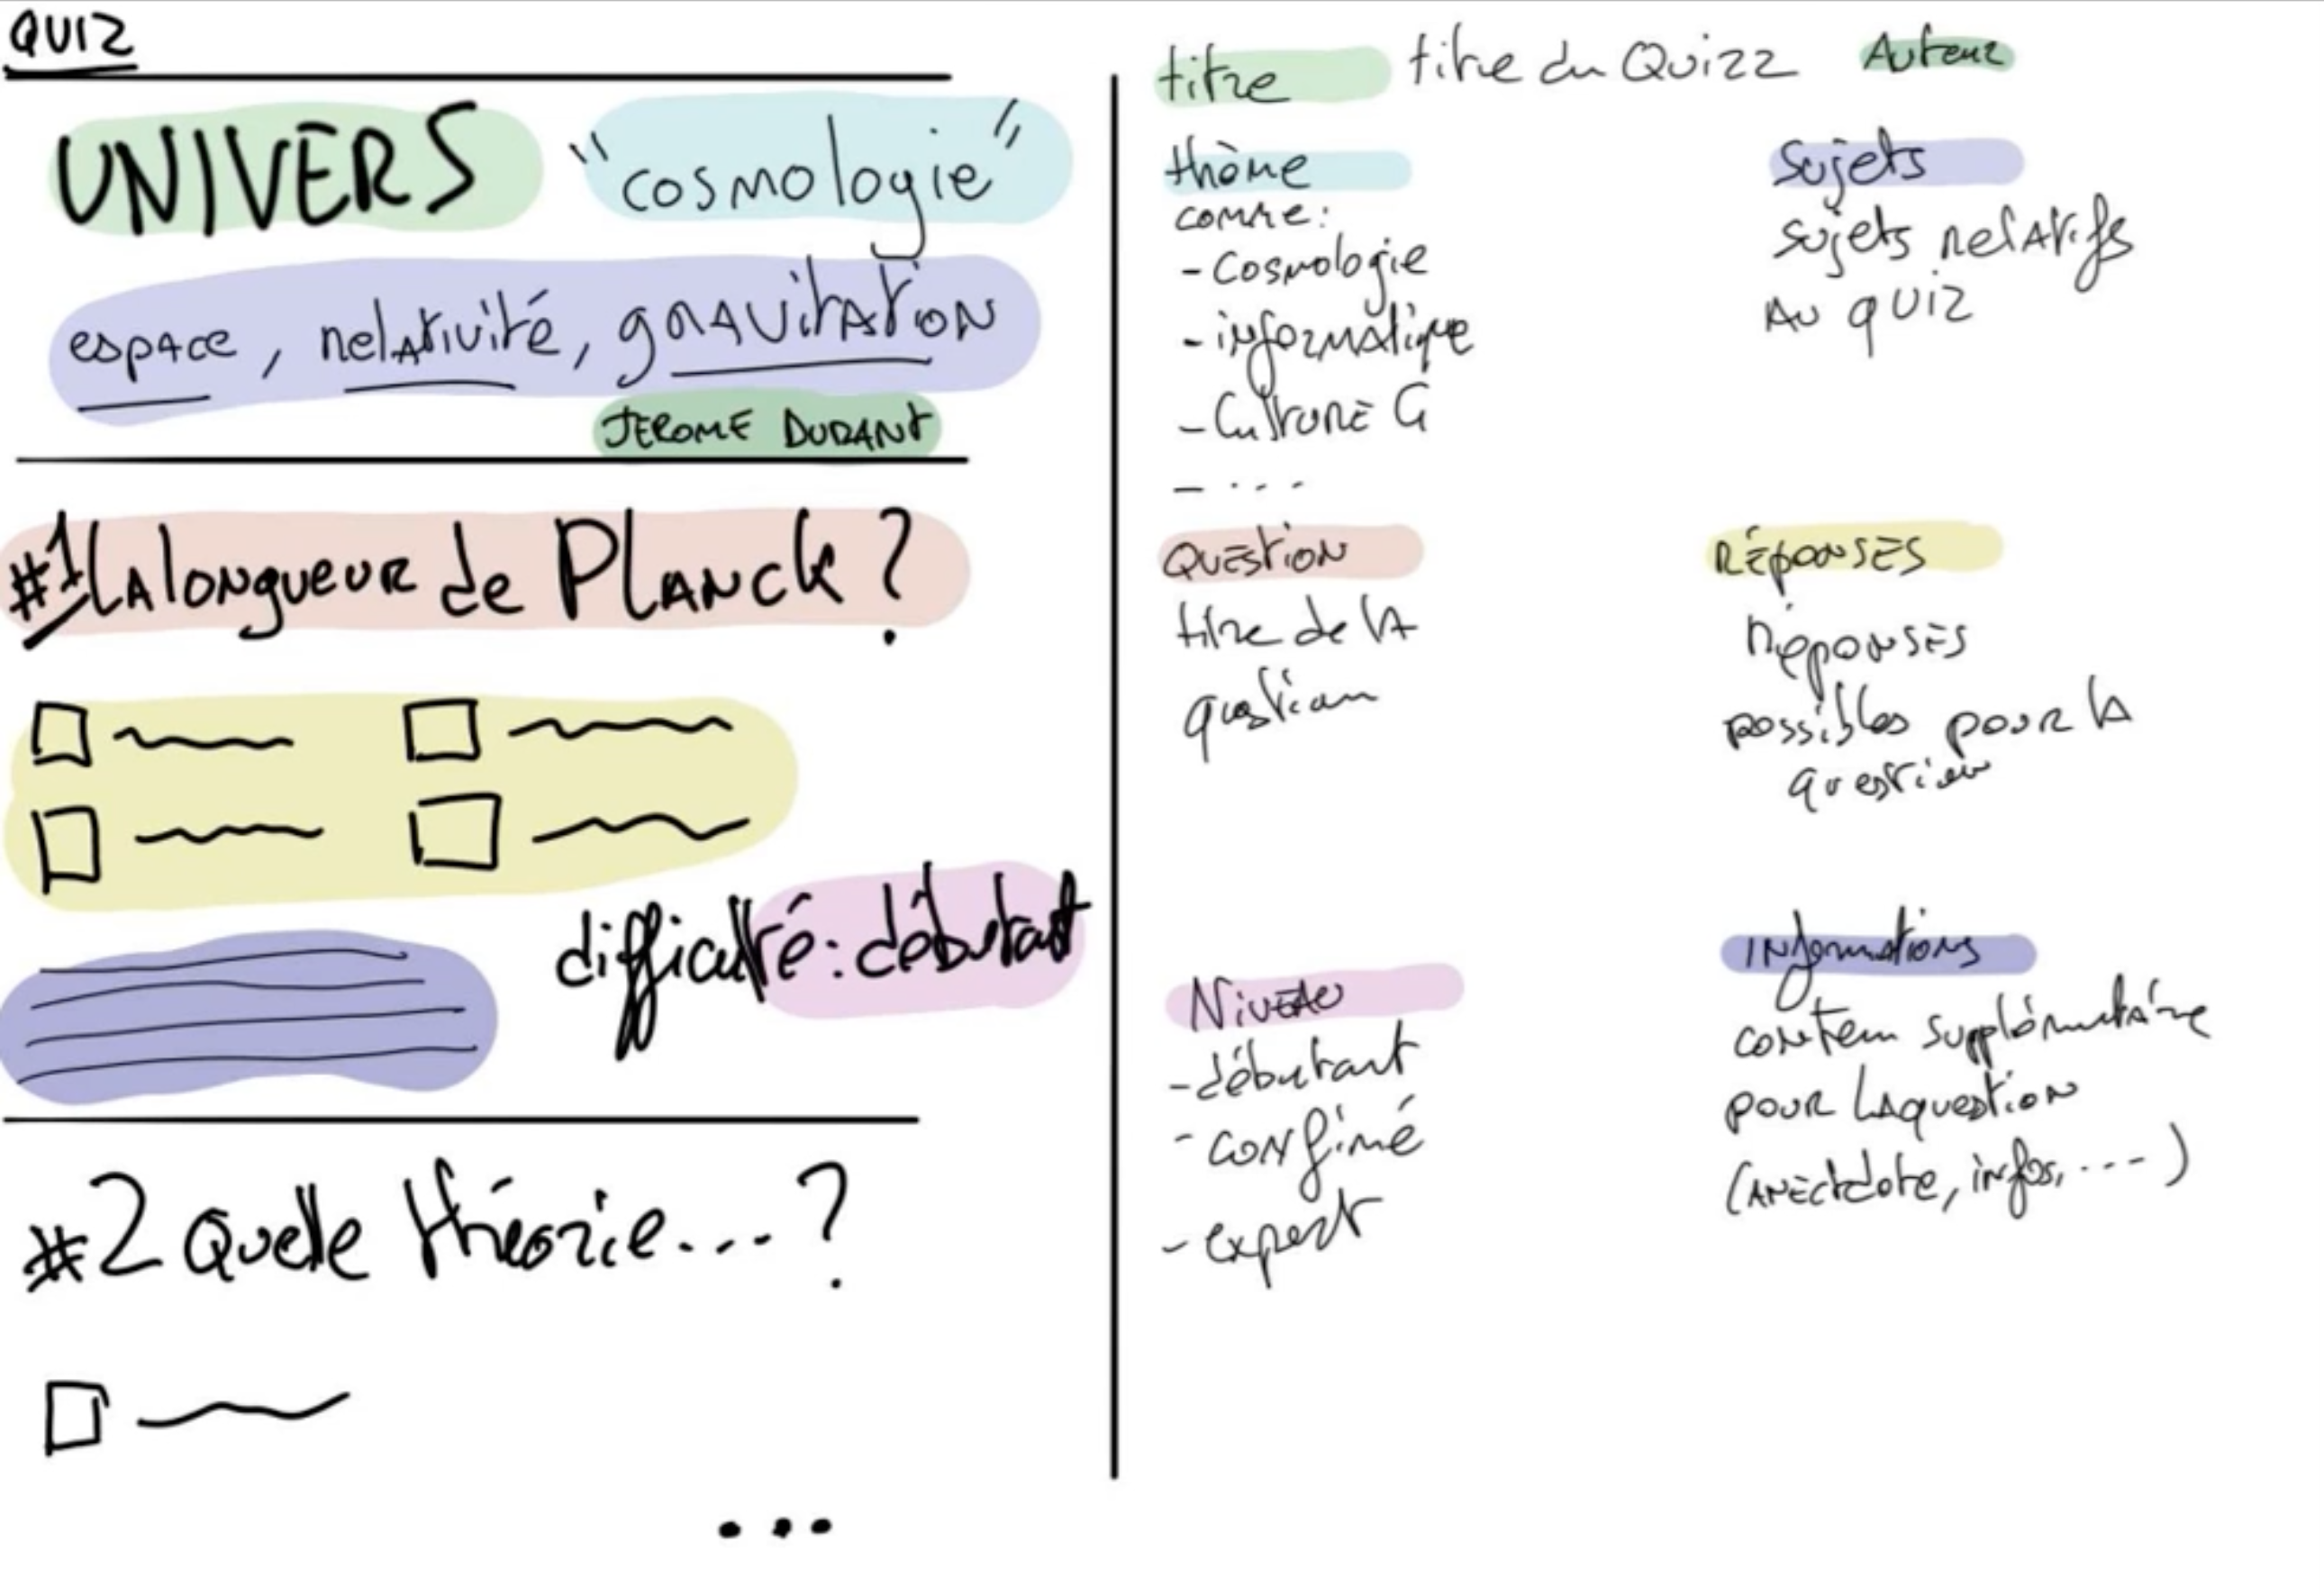 QUIZ
UNIVERS "cosmologie"
espace, relativité, gravitation
JEROME DURANT
#1 La longueur de Planck ?
difficulté : débutant
#2 Quelle théorie... ?
...
titre titre du Quizz Auteur
thème
comme :
- Cosmologie
- informatique
- Culture G
- ...
Sujets
sujets relatifs
au quiz
QUESTION
titre de la
question
RÉPONSES
réponses
possibles pour la
question
Niveau
- débutant
- confirmé
- expert
Informations
contenu supplémentaire
pour la question
(anectdote, infos, ....)